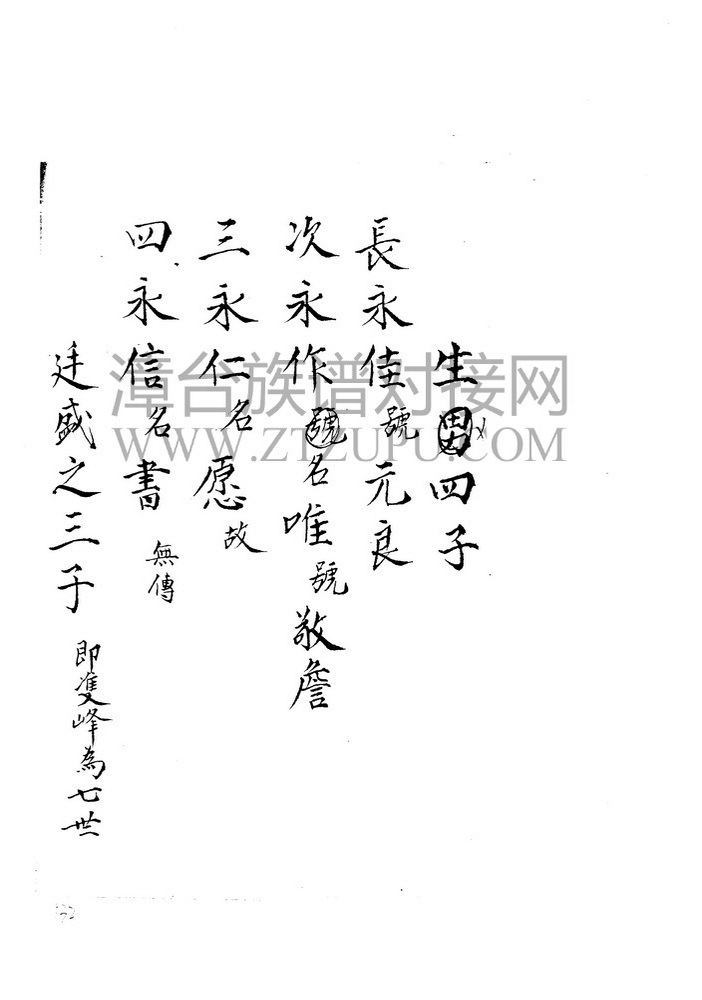 生男四子
長永佳號元良
次永作號名唯號敬詹
三永仁名愿故
四永信名書無傳
廷盛之三子即雙峰為七世
漳台族谱对接网
WWW.ZTZUPU.COM